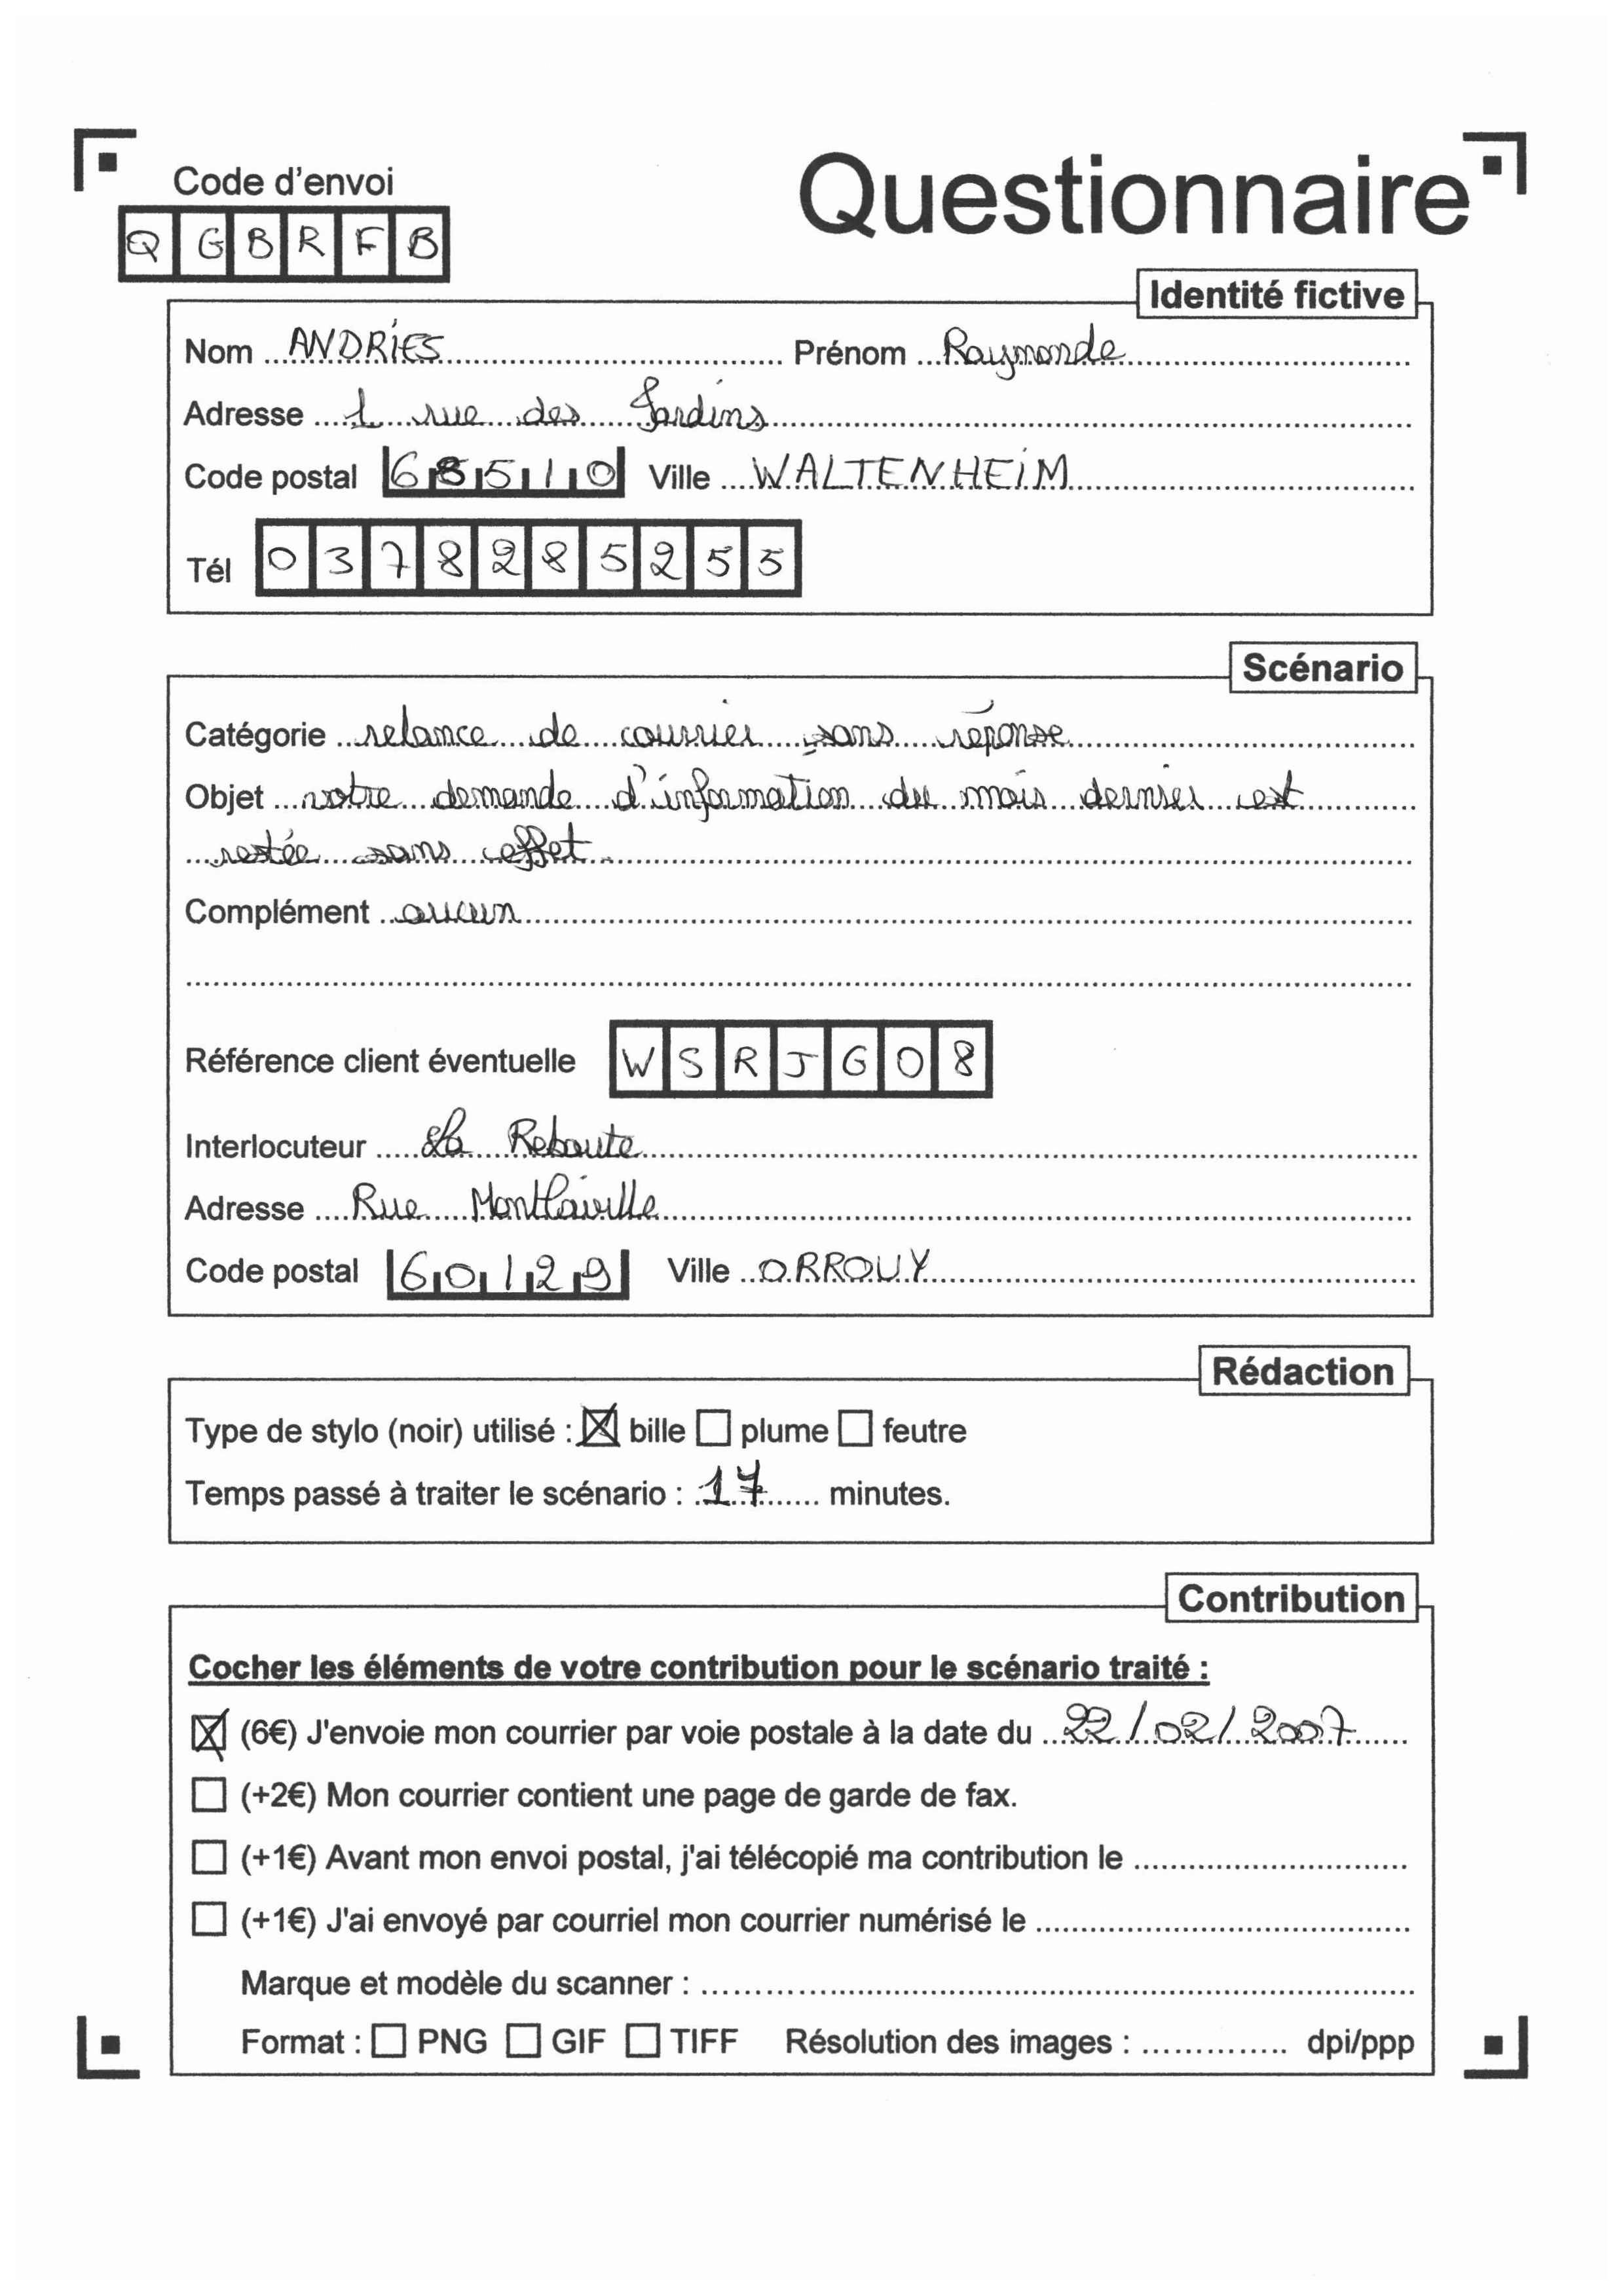 Code d'envoi
Questionnaire
QGBRFB
Identité fictive
Nom ANDRIES Prénom Raymonde
Adresse 1 rue des Jardins
Code postal 68510 Ville WALTENHEIM
Tél 0378285255
Scénario
Catégorie relance de courrier sans réponse
Objet votre demande d'information du mois dernier est
restée sans effet.
Complément aucun
Référence client éventuelle WSRJG08
Interlocuteur La Reboute
Adresse Rue Montlaiville
Code postal 60129 Ville ORROUY
Rédaction
Type de stylo (noir) utilisé : ☒ bille ☐ plume ☐ feutre
Temps passé à traiter le scénario : 17 minutes.
Contribution
Cocher les éléments de votre contribution pour le scénario traité :
☒ (6€) J'envoie mon courrier par voie postale à la date du 22/02/2007
☐ (+2€) Mon courrier contient une page de garde de fax.
☐ (+1€) Avant mon envoi postal, j'ai télécopié ma contribution le
☐ (+1€) J'ai envoyé par courriel mon courrier numérisé le
Marque et modèle du scanner :
Format : ☐ PNG ☐ GIF ☐ TIFF Résolution des images : dpi/ppp